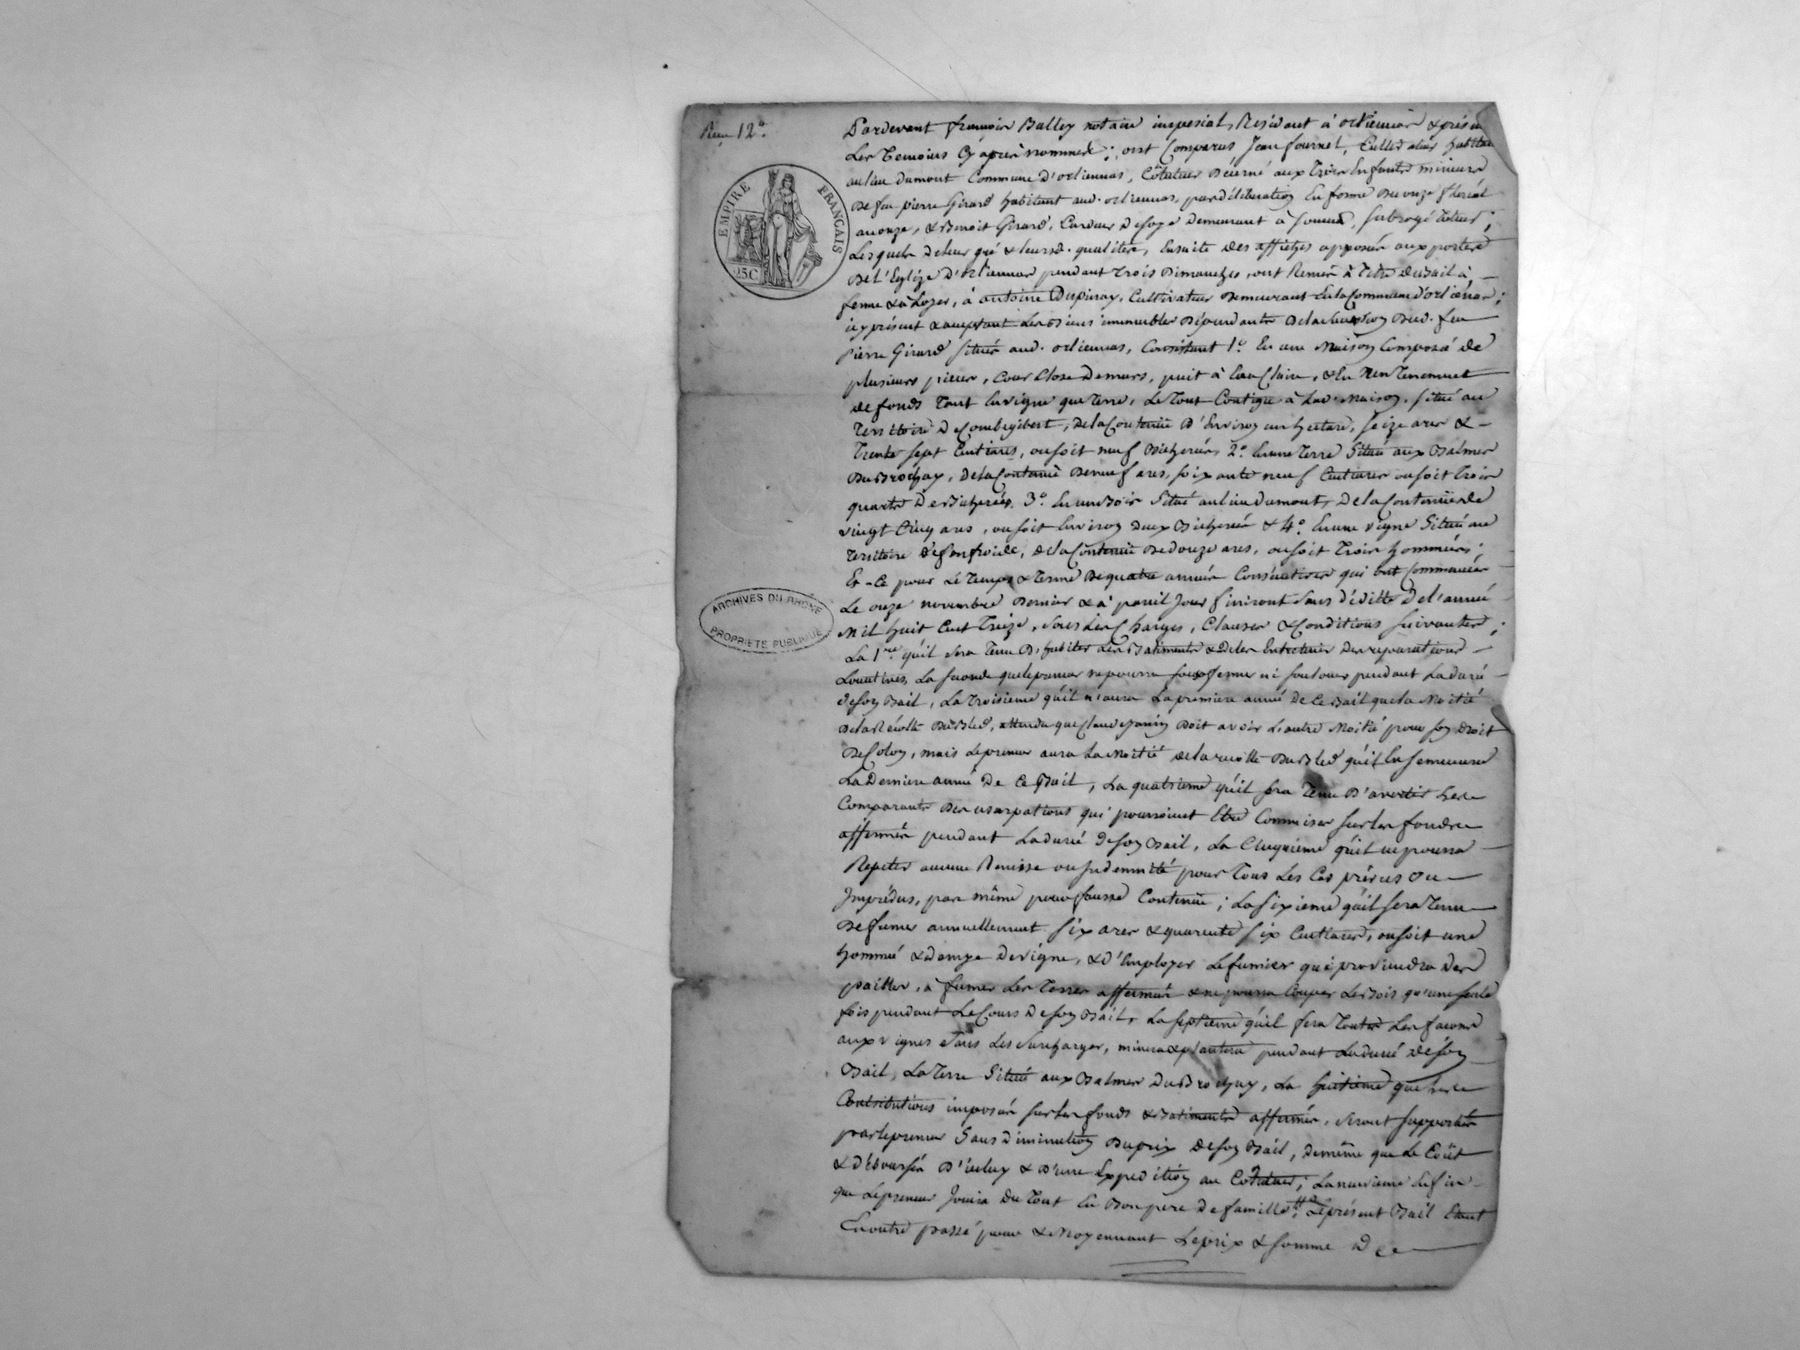 Reçu 12.
EMPIRE FRANÇAIS
25 C
ARCHIVES DU RHONE
PROPRIETE PUBLIQUE
Pardevant françois Balley notaire imperial, Residant à orliennas & présens
Les Temoins Cy après nommés; ont Comparus Jean fournel, Cultivateur habitant
au lieu dumont Commune d'orliennas, Cotuteur Décerné aux Trois Enfants mineurs
De feu pierre Girard habitant aud. orliennas, par délibération En forme Du onze floréal
an onze, & Benoit Girard, Cardeur De soye Demeurant à Soucieu, subrogé tuteur;
Lesquels De leur gré & leursd. qualités, Ensuite Des affiches apposées aux portes
De L'Eglize D'orliennas pendant Trois Dimanches, ont Remis à Titre de Bail à
ferme & à Loyer, à antoine Dupinay, Cultivateur Demeurant En la Commune d'orliénas;
icy présent & acceptant Les Biens immeubles Dépendants De la succession Dud. feu
pierre Girard situés aud. orliennas, Consistant 1.° En une Maison Composée de
plusieurs pieces, Cour Close De murs, puit à Eau Claire, & En un Tenement
de fonds Tant En vigne que Terre, Le Tout Contigu à Lad. Maison, situé au
Territoire De Combegibert, De la Contenüe D'Environ un hectare, seize ares &
Trente sept Centiares, ou soit neuf Bicherées 2.° En une Terre Située aux Balmes
Du Brochay, De la Contenüe De neuf ares, soixante neuf Centiares ou soit Trois
quarts De Bicherées. 3.° En un Bois Situé au lieu Dumont, De la Contenüe de
vingt Cinq ares, ou soit Environ Deux Bicherées & 4.° En une vigne Située au
Territoire de fonfroide, de la Contenüe De Douze ares, ou soit Trois hommées;
Et Ce pour Le Temps & Terme De quatre années Consécutives qui ont Commencées
Le onze novembre Dernier & à pareil Jour finiront Sans D'éditte De L'année
Mil huit Cent Treize, Sous Les Charges, Clauses & Conditions suivantes;
La 1.re qu'il sera Tenu D'habiter Les Batiments & De Les Entretenir Des reparations
Locatives, La seconde que le preneur ne pourra sousfermer ni soulouer pendant La durée
De son Bail, La Troisieme qu'il n'aura La premiere année De Ce Bail que la Moitié
De la Récolte Du Bled, attendu que Claude Janin Doit avoir L'autre Moitié pour son Droit
De Colon, mais Le preneur aura La Moitié de la récolte Du Bled qu'il En semencera
La Derniere année De Ce Bail, La quatrieme qu'il sera Tenu D'avertir Les
Comparants Des usurpations qui pourroient Etre Commises sur Les fonds
affermés pendant La durée De son Bail, La Cinquieme qu'il ne pourra
Repeter aucune Remise ou Indemnité pour Tous Les Cas prévus ou
Imprévus, pas même pour fausse Contenüe; La sixieme qu'il sera Tenu
De fumer annuellement six ares & quarente six Centiares, ou soit une
hommée & demye De vigne, & D'Employer Le fumier qui proviendra Des
pailles, à fumer Les Terres affermées & ne pourra Couper Les Bois qu'une seule
fois pendant Le Cours De son Bail, La septieme qu'il fera Toutes Les façons
aux vignes Sans Les Surcharger, minera & plantera pendant La durée de son
Bail, La Terre Située aux Balmes Du Brochay, La huitieme que Les
Contributions imposées sur Les fonds & Batiments affermés, seront supportées
par Le preneur Sans Diminution Du prix De son Bail, De même que Le Coût
& Déboursés D'iceluy & D'une Expedition au Cotuteur; La neuvieme Enfin
que Le preneur Jouira Du Tout En Bon pere De famille. Le présent Bail Etant
En outre passé pour & Moyennant Le prix & somme De